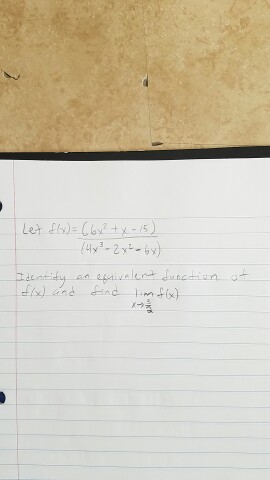 Let f(x) = (6x² + x - 15)
(4x³ - 2x² - 6x)
Identify an equivalent function of
f(x) and find lim f(x)
x→3/2